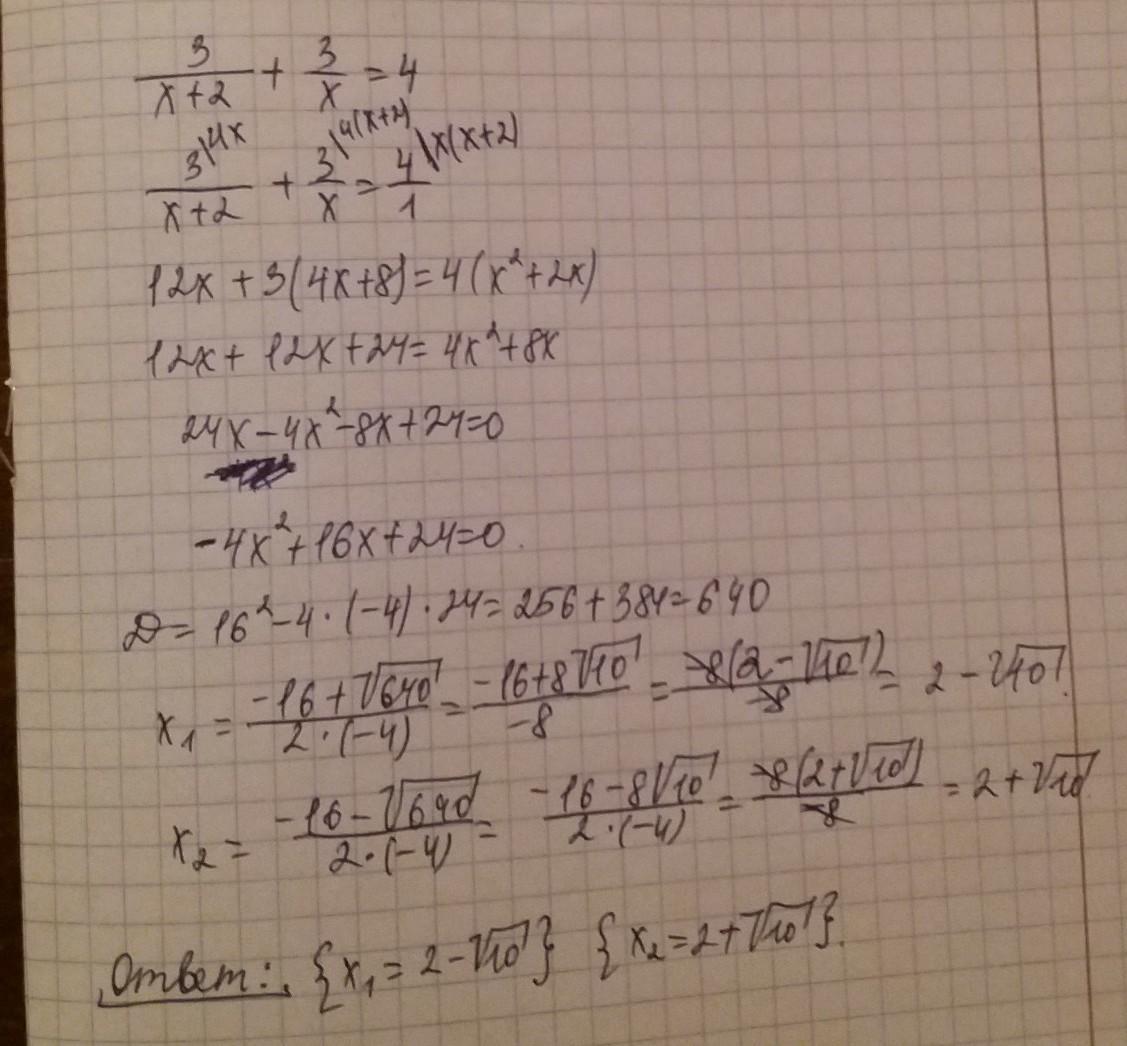 3/(x+2) + 3/x = 4
3\4x/(x+2) + 3\4(x+2)/x = 4\x(x+2)/1
12x + 3(4x+8) = 4(x²+2x)
12x + 12x + 24 = 4x² + 8x
24x - 4x² - 8x + 24 = 0
-4x² + 16x + 24 = 0.
D = 16² - 4 · (-4) · 24 = 256 + 384 = 640
x₁ = (-16 + √640)/(2 · (-4)) = (-16 + 8√10)/(-8) = (-8(2 - √10))/(-8) = 2 - √10.
x₂ = (-16 - √640)/(2 · (-4)) = (-16 - 8√10)/(2 · (-4)) = (-8(2 + √10))/(-8) = 2 + √10
Ответ: {x₁ = 2 - √10} {x₂ = 2 + √10}.